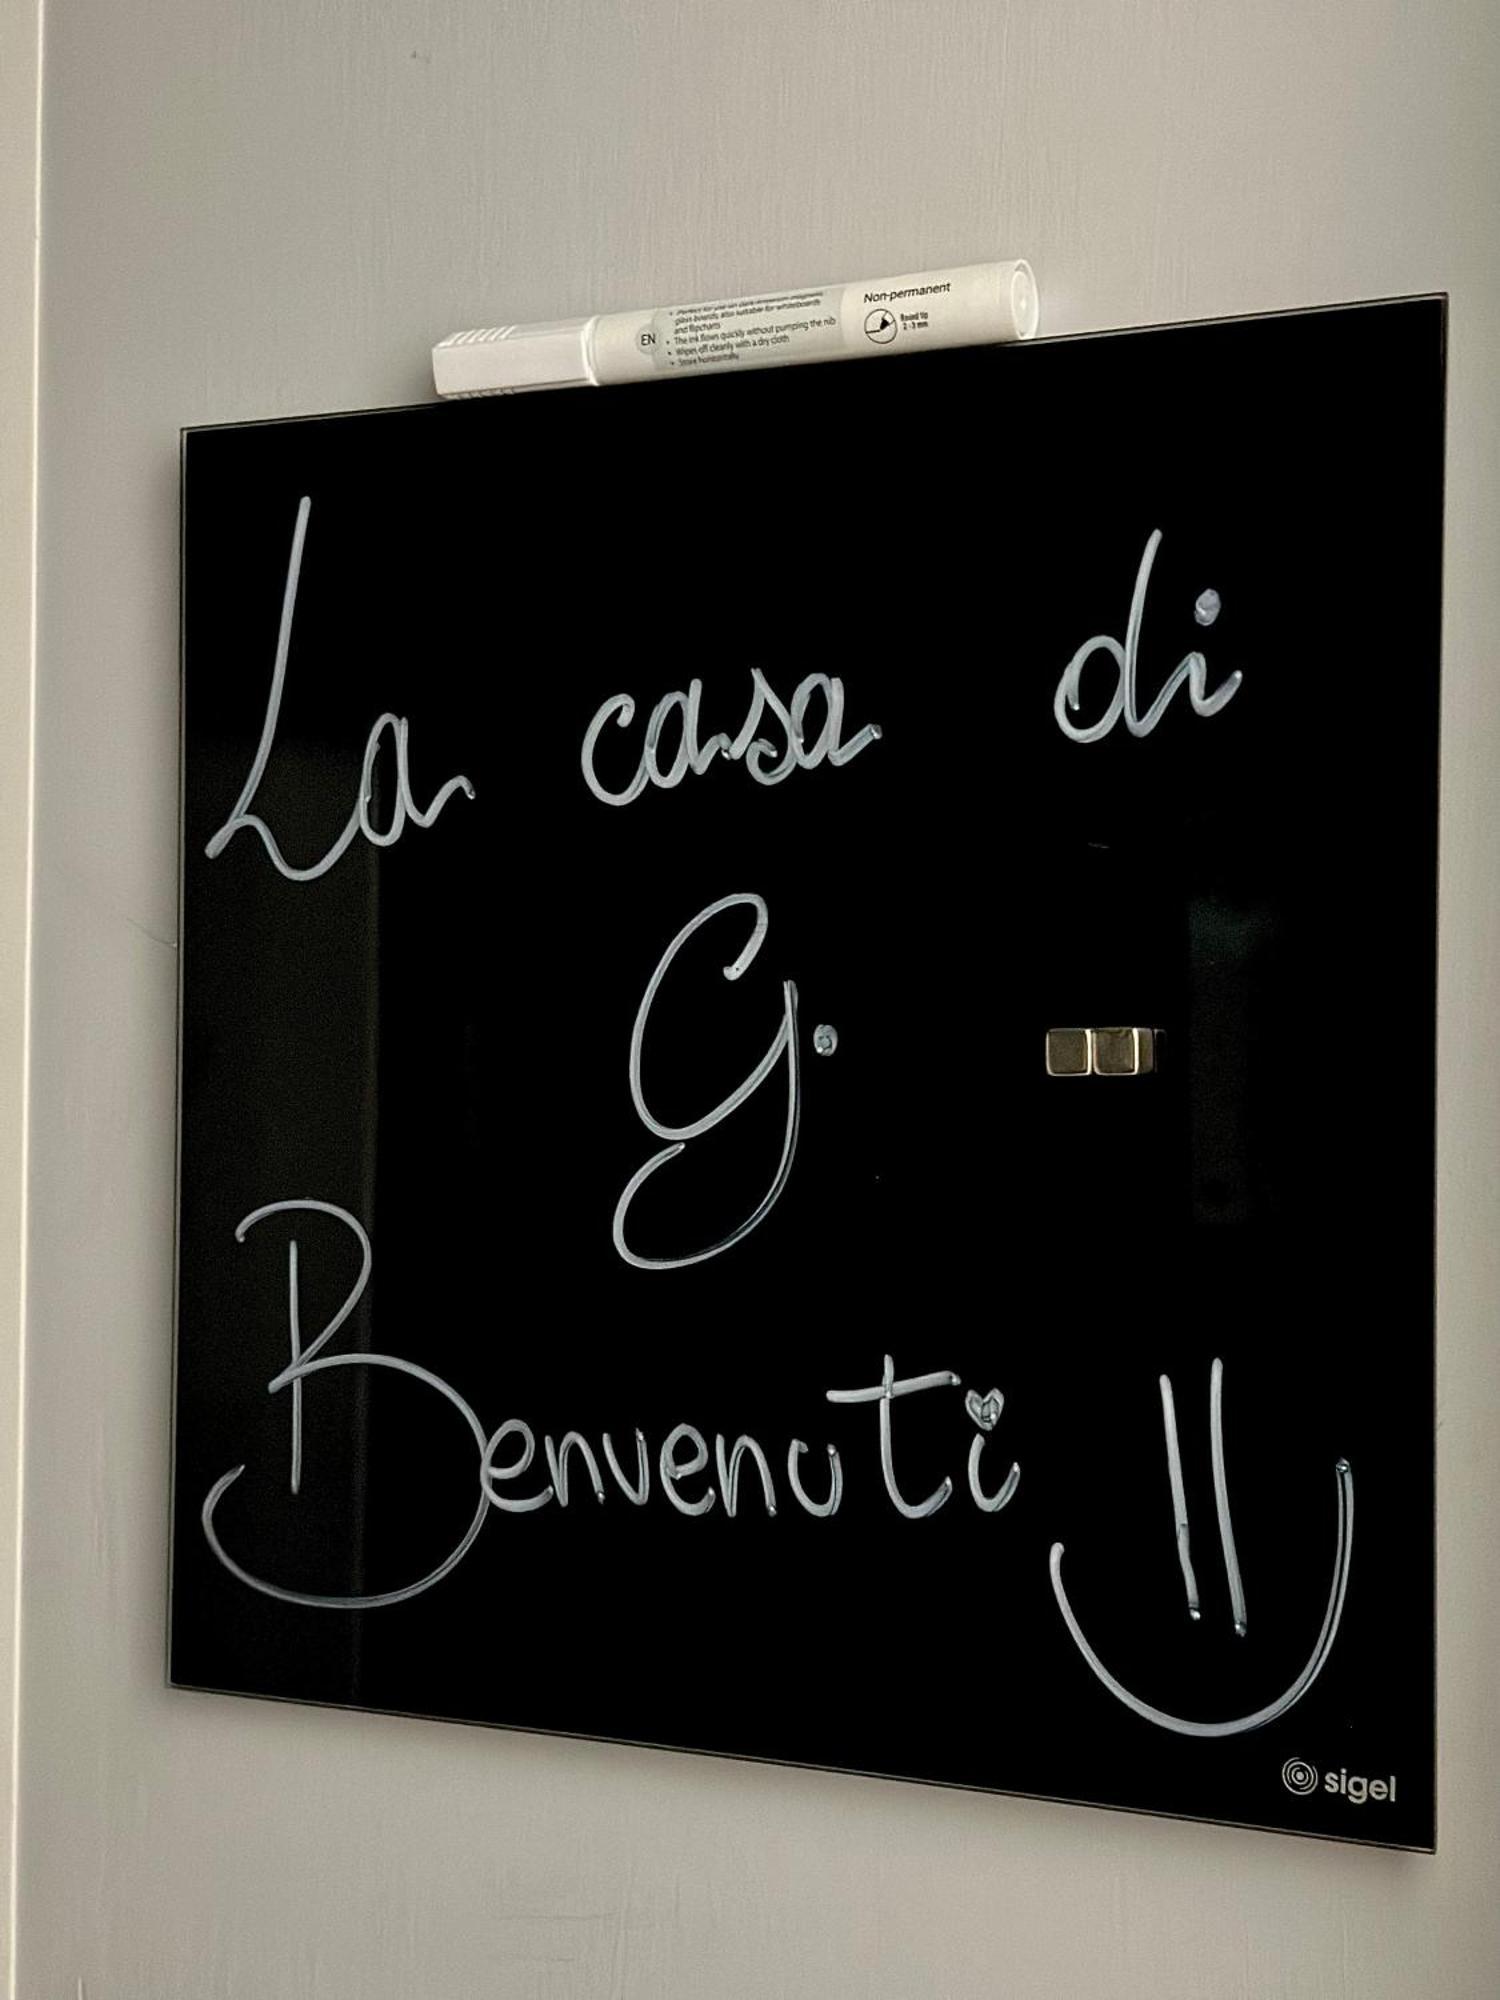 Non-permanent
EN
glass boards, also suitable for whiteboards
and flipcharts
• The ink flows quickly without pumping the nib
• Wipes off cleanly with a dry cloth
• Store horizontally
Round tip
2-3 mm
La casa di
G.
Benvenuti
sigel